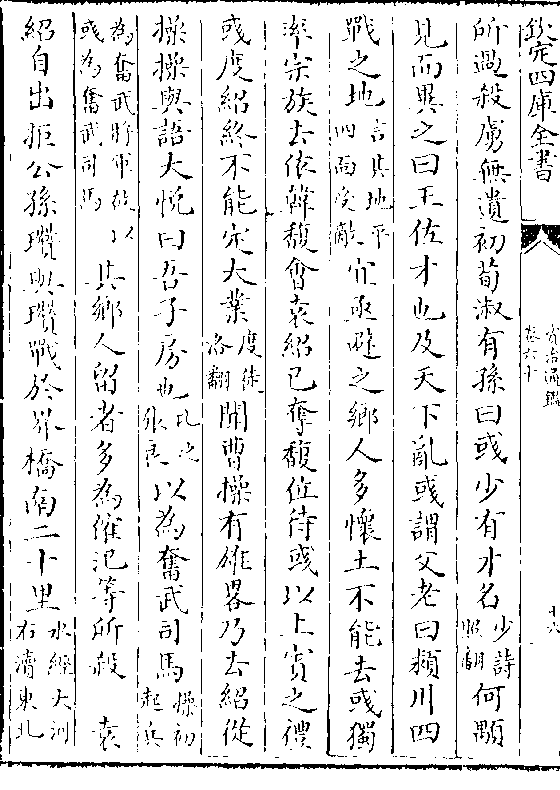 欽定四庫全書
資治通鑑
卷六十
十六
所過殺虜無遺初荀淑有孫曰彧少有才名少詩照翻何顒
見而異之曰王佐才也及天下亂彧謂父老曰潁川四
戰之地言其地平四面受敵宜亟避之鄉人多懷土不能去彧獨
率宗族去依韓馥會袁紹已奪馥位待彧以上賓之禮
彧度紹終不能定大業度徒洛翻聞曹操有雄畧乃去紹從
操操與語大悅曰吾子房也比之張良以為奮武司馬操初起兵
為奮武將軍故以彧為奮武司馬其鄉人留者多為傕汜等所殺 袁
紹自出拒公孫瓚與瓚戰於界橋南二十里水經大河右瀆東北